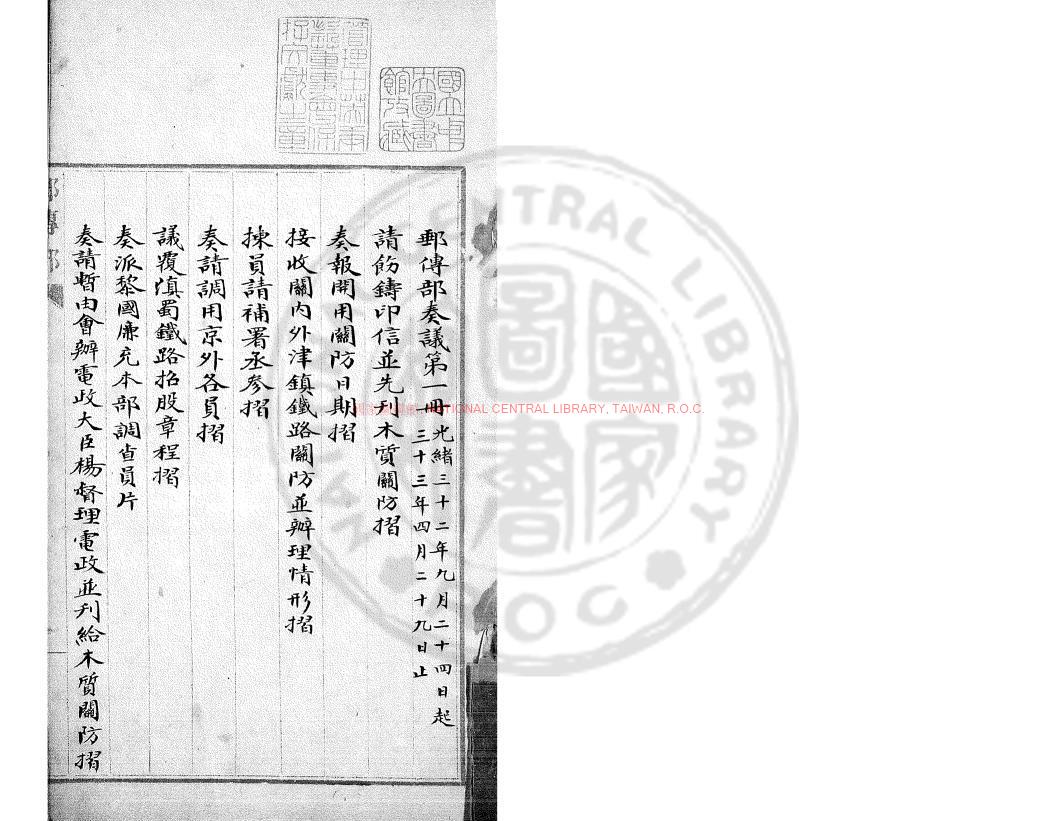 郵傳部奏議第一冊
光緒三十二年九月二十四日起
三十三年四月二十九日止
請飭鑄印信並先刋木質關防摺
奏報開用關防日期摺
接收關內外津鎮鐵路關防並辦理情形摺
揀員請補署丞參摺
奏請調用京外各員摺
議覆滇蜀鐵路招股章程摺
奏派黎國廉充本部調查員片
奏請暫由會辦電政大臣楊督理電政並刋給木質關防摺
郵傳部
國立中央圖書館收藏
管理中英庚款董事會保存文獻之章
NATIONAL CENTRAL LIBRARY, TAIWAN, R.O.C.
國家圖書
NATIONAL CENTRAL LIBRARY
R.O.C